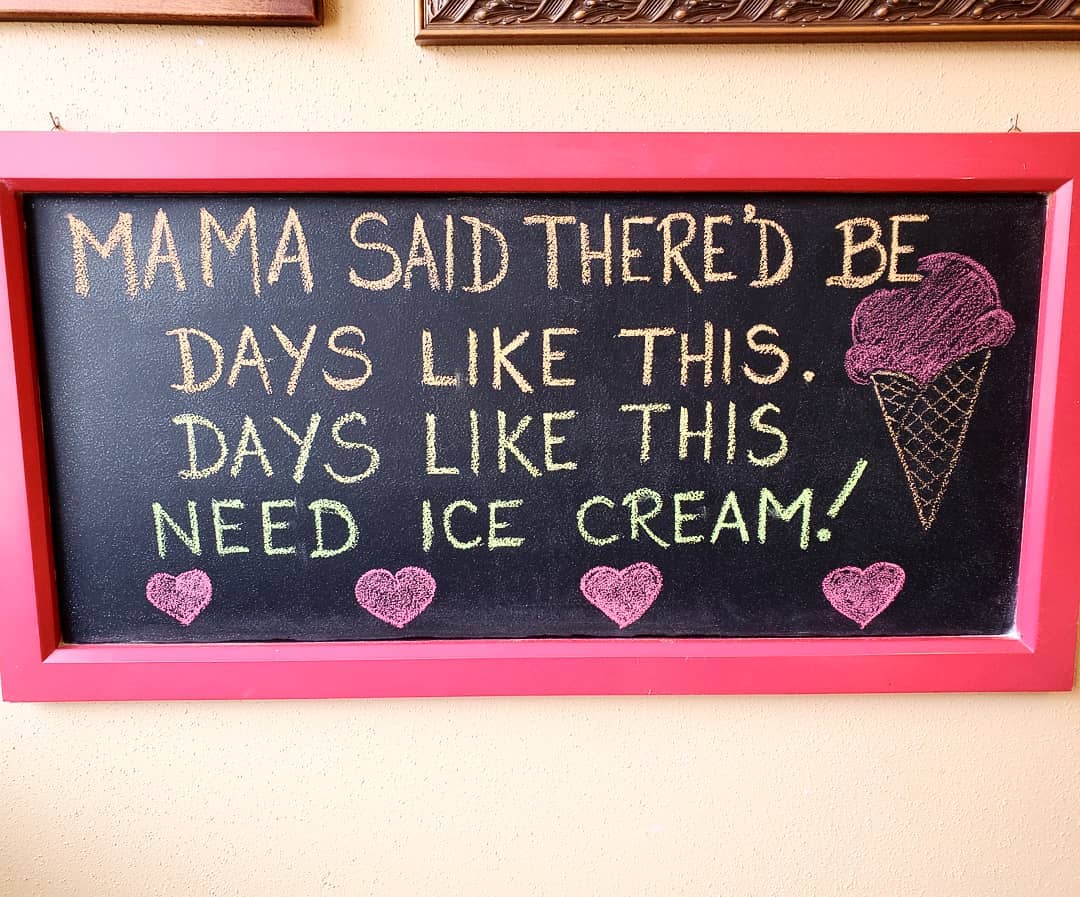 MAMA SAID THERE'D BE
DAYS LIKE THIS.
DAYS LIKE THIS
NEED ICE CREAM!